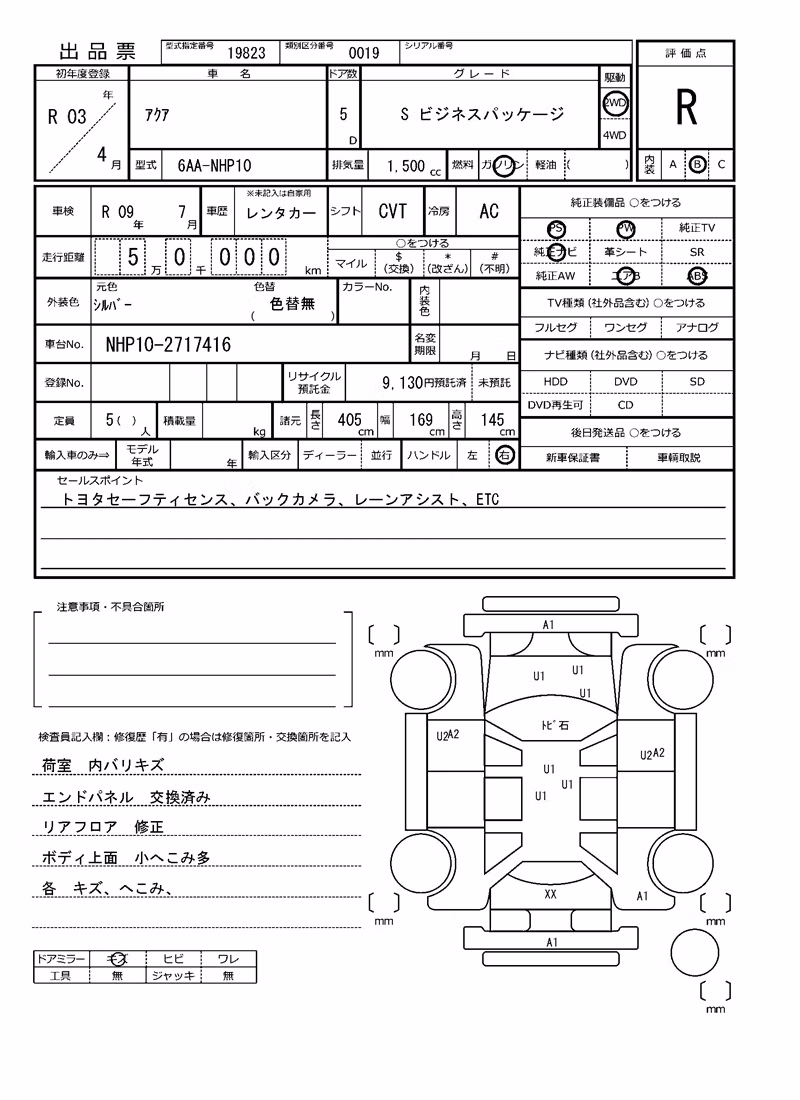 出品票 型式指定番号 19823 類別区分番号 0019 シリアル番号
評価点
R
内装 A B C
初年度登録 車名 ドア数 グレード 駆動
R 03 年 4 月 アクア 5 D S ビジネスパッケージ 2WD 4WD
型式 6AA-NHP10 排気量 1,500 cc 燃料 ガソリン 軽油 ( )
車検 R 09 年 7 月 車歴 ※未記入は自家用 レンタカー シフト CVT 冷房 AC
走行距離 5 万 0 千 0 0 0 km
○をつける
マイル $ (交換) * (改ざん) # (不明)
外装色 元色 シルバー 色替 ( 色替無 ) カラーNo. 内装色
車台No. NHP10-2717416 名変期限 月 日
登録No. リサイクル預託金 9,130円預託済 未預託
定員 5( ) 人 積載量 kg 諸元 長さ 405 cm 幅 169 cm 高さ 145 cm
輸入車のみ⇒ モデル年式 年 輸入区分 ディーラー 並行 ハンドル 左 右
純正装備品 ○をつける
PS PW 純正TV
純正ナビ 革シート SR
純正AW エアB ABS
TV種類(社外品含む)○をつける
フルセグ ワンセグ アナログ
ナビ種類(社外品含む)○をつける
HDD DVD SD
DVD再生可 CD
後日発送品 ○をつける
新車保証書 車輌取説
セールスポイント
トヨタセーフティセンス、バックカメラ、レーンアシスト、ETC
注意事項・不具合箇所
検査員記入欄：修復歴「有」の場合は修復箇所・交換箇所を記入
荷室 内バリキズ
エンドパネル 交換済み
リアフロア 修正
ボディ上面 小へこみ多
各 キズ、へこみ、
ドアミラー キズ ヒビ ワレ
工具 無 ジャッキ 無
A1
mm mm
U1 U1
U1
トビ石
U2A2 U2A2
U1
U1
U1
XX A1
mm mm
A1
mm